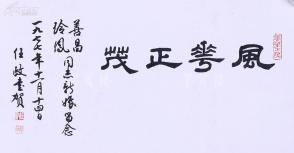 風華正茂
善昌
玲鳳
同志新婚留念
一九七七年十一月十四日
任政書賀